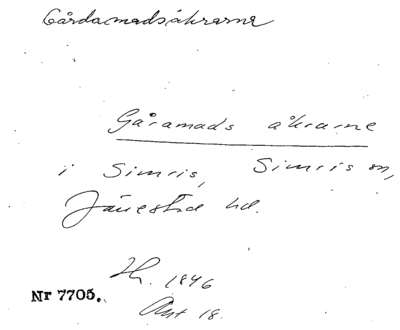 Gårdamadsåkrarne
Gåramads åkrarne
i Simris, Simris sn,
Järrestad hd.
Hr. 1846
Nr 7705.
Akt 18.